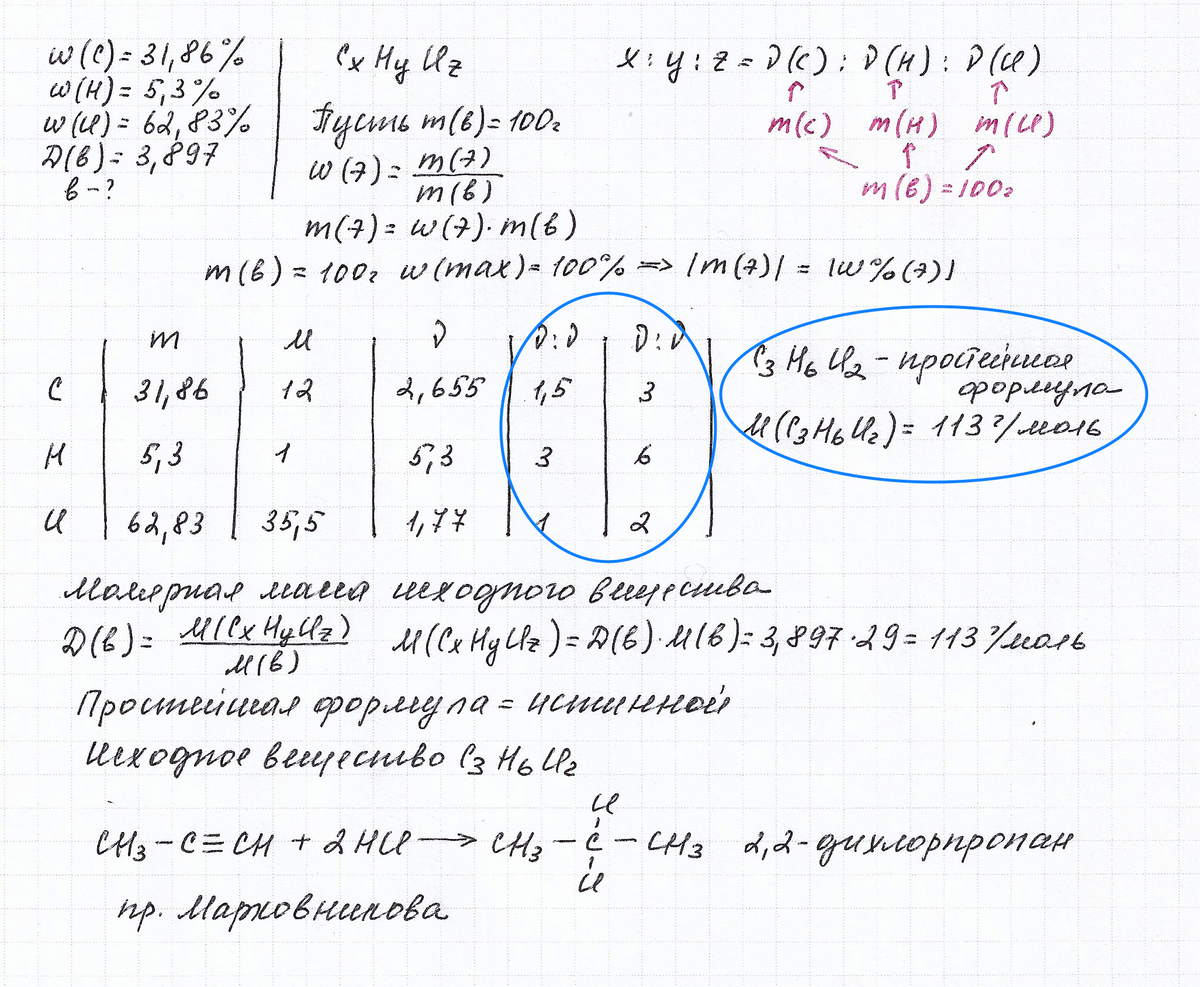 w(C) = 31,86%
w(H) = 5,3%
w(Cl) = 62,83%
D(в) = 3,897
в - ?
CxHyClz
Пусть m(в) = 100г
w(э) = m(э) / m(в)
m(э) = w(э) · m(в)
x : y : z = ν(C) : ν(H) : ν(Cl)
↑ ↑ ↑
m(C) m(H) m(Cl)
↖ ↑ ↗
m(в) = 100г
m(в) = 100г w(max) = 100% => |m(э)| = |w%(э)|
m M ν ν:ν ν:ν
C 31,86 12 2,655 1,5 3
H 5,3 1 5,3 3 6
Cl 62,83 35,5 1,77 1 2
C₃H₆Cl₂ – простейшая
формула
M(C₃H₆Cl₂) = 113 г/моль
Молярная масса исходного вещества
D(в) = M(CxHyClz) / M(в) M(CxHyClz) = D(в) · M(в) = 3,897 · 29 = 113 г/моль
Простейшая формула = истинной
Исходное вещество C₃H₆Cl₂
Cl
CH₃ – C ≡ CH + 2HCl → CH₃ – C – CH₃ 2,2-дихлорпропан
Cl
пр. Марковникова